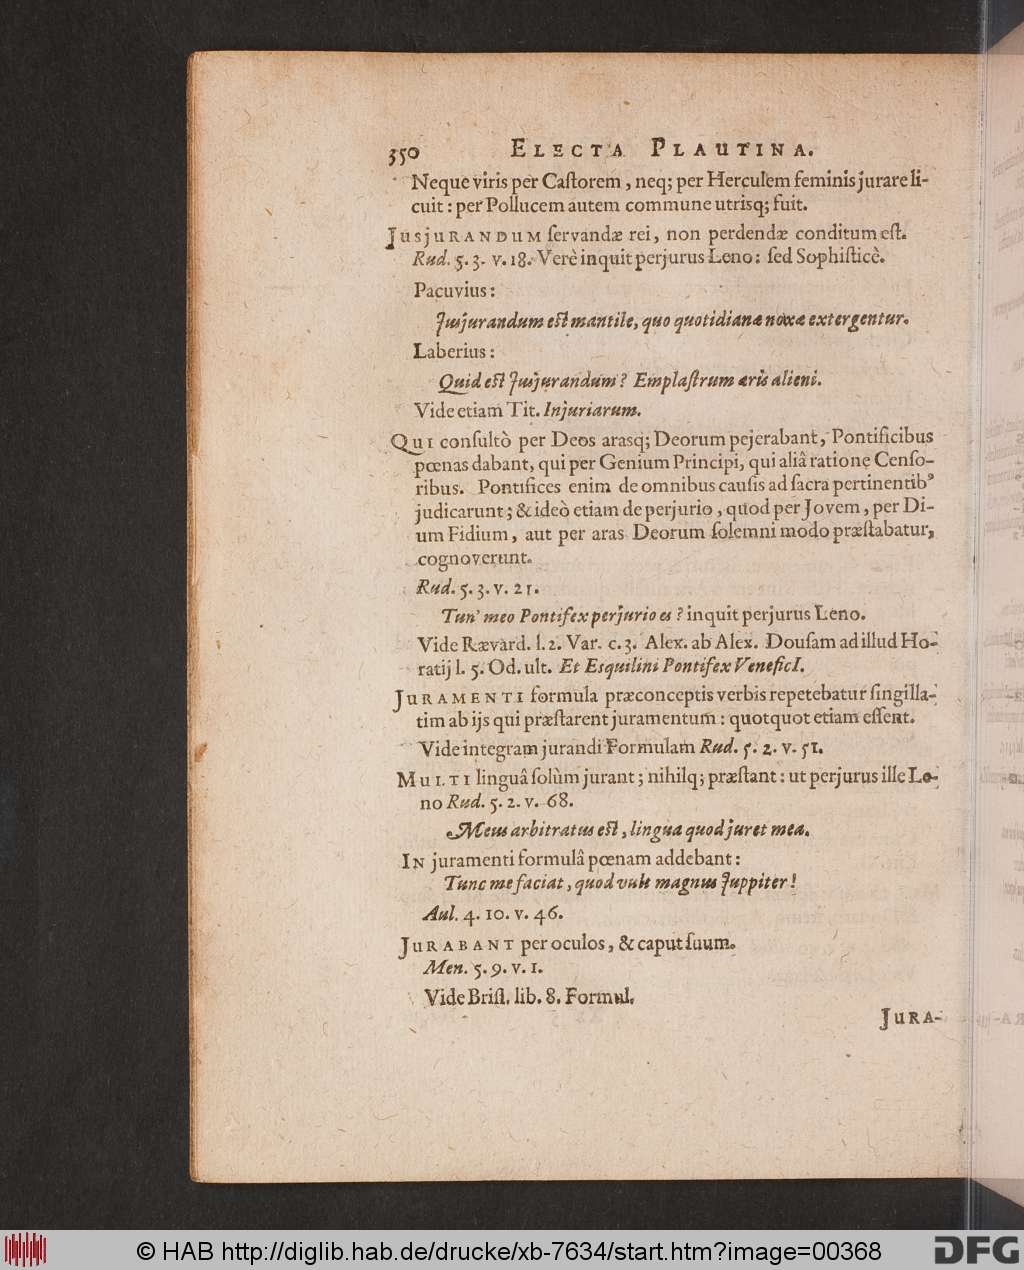 350 ELECTA PLAUTINA.
Neque viris per Caſtorem, neq; per Herculem feminis jurare li-
cuit: per Pollucem autem commune utrisq; fuit.
JusjURANDUM ſervandæ rei, non perdendæ conditum eſt.
Rud. 5. 3. v. 18. Verè inquit perjurus Leno: ſed Sophiſticè.
Pacuvius:
Juſjurandum eſt mantile, quo quotidianæ noxæ extergentur.
Laberius:
Quid eſt Juſjurandum? Emplaſtrum æris alieni.
Vide etiam Tit. Injuriarum.
QUI conſultò per Deos arasq; Deorum pejerabant, Pontificibus
pœnas dabant, qui per Genium Principi, qui aliâ ratione Cenſo-
ribus. Pontifices enim de omnibus cauſis ad ſacra pertinentibꝰ
judicarunt; & ideò etiam de perjurio, quod per Jovem, per Di-
um Fidium, aut per aras Deorum ſolemni modo præſtabatur,
cognoverunt.
Rud. 5. 3. v. 21.
Tun' meo Pontifex perjurio es? inquit perjurus Leno.
Vide Rævard. l. 2. Var. c. 3. Alex. ab Alex. Douſam ad illud Ho-
ratij l. 5. Od. ult. Et Esquilini Pontifex VeneficI.
JURAMENTI formula præconceptis verbis repetebatur ſingilla-
tim ab ijs qui præſtarent juramentum: quotquot etiam eſſent.
Vide integram jurandi Formulam Rud. 5. 2. v. 51.
MULTI linguâ ſolùm jurant; nihilq; præſtant: ut perjurus ille Le-
no Rud. 5. 2. v. 68.
Meus arbitratus eſt, lingua quod juret mea.
IN juramenti formulâ pœnam addebant:
Tunc me faciat, quod vult magnus Juppiter!
Aul. 4. 10. v. 46.
JURABANT per oculos, & caput ſuum.
Men. 5. 9. v. 1.
Vide Briſſ. lib. 8. Formul.
JURA-
© HAB http://diglib.hab.de/drucke/xb-7634/start.htm?image=00368
DFG